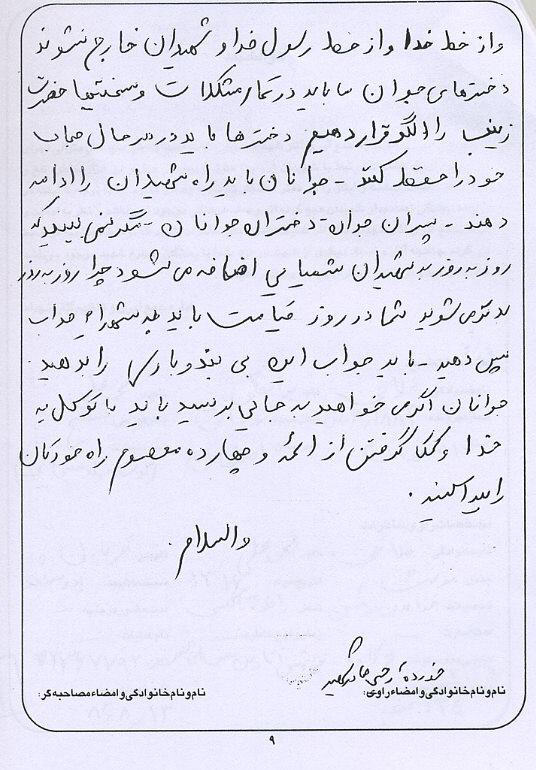 و از خط خدا و از خط رسول خدا و شهیدان خارج نشوند
دخترهای جوان ما باید در تمام مشکلات و سختیها حضرت
زینب را الگو قرار دهیم دخترها باید در هر حال حجاب
خود را حفظ کنند - جوانان باید راه شهیدان را ادامه
دهند - پسران جوان - دختران جوانان - مگر نمی بینید که
روز به روز به شهیدان شیمیایی اضافه می شود چرا روز به روز
بدتر می شوید شما در روز قیامت باید به شهدا جواب
پس دهید - باید جواب این بی بندوباریها را بدهید
جوانان اگر می خواهید به جایی برسید باید با توکل به
خدا و کمک گرفتن از ائمه و چهارده معصوم راه خودتان
را پیدا کنید .
والسلام
نام و نام خانوادگی و امضاء راوی:
نام و نام خانوادگی و امضاء مصاحبه گر:
۹